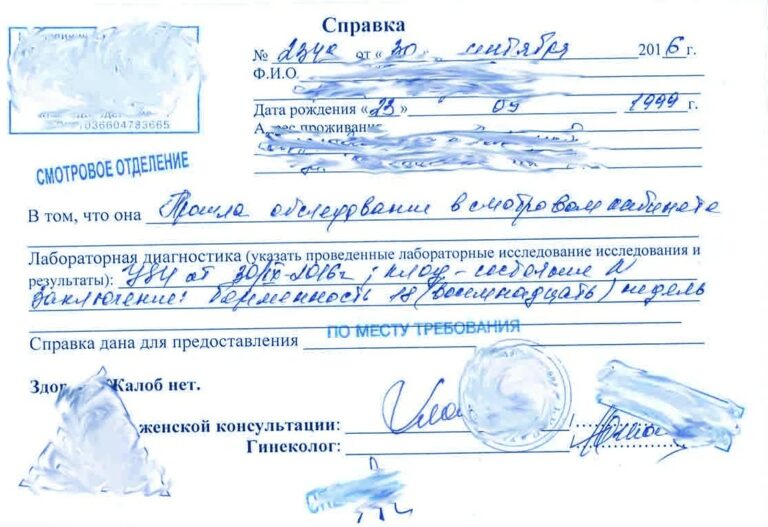 Справка
№ 234 от « 30 » сентября 2016 г.
Ф.И.О.
036604783665
Дата рождения « 23 » 09 1999 г.
СМОТРОВОЕ ОТДЕЛЕНИЕ
В том, что она Прошла обследование в смотровом кабинете
Лабораторная диагностика (указать проведенные лабораторные исследование исследования и
результаты): УЗИ от 30/IX-2016г ; плод - состояние N
Заключение: беременность 18 (восемнадцать) недель
Справка дана для предоставления ПО МЕСТУ ТРЕБОВАНИЯ
Жалоб нет.
женской консультации:
Гинеколог: